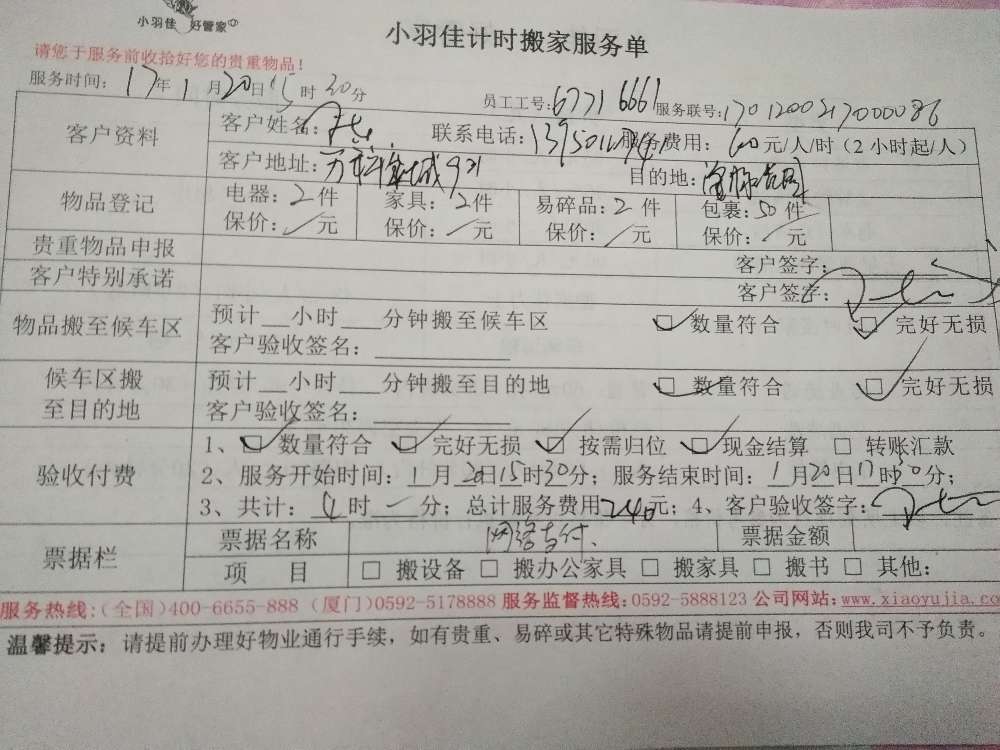 小羽佳 好管家
小羽佳计时搬家服务单
请您于服务前收拾好您的贵重物品!
服务时间: 17年1月20日15时30分 员工工号: 6771 6661 服务联号: 1701200217000086
客户资料 客户姓名: 联系电话: 服务费用: 60元/人/时(2小时起/人)
客户地址: 万科金域 目的地:
物品登记 电器: 2件 家具: 2件 易碎品: 2件 包裹: 50件
保价: / 元 保价: / 元 保价: / 元 保价: / 元
贵重物品申报 客户签字:
客户特别承诺 客户签字:
物品搬至候车区 预计__小时___分钟搬至候车区 ☑ 数量符合 ☑ 完好无损
客户验收签名:
候车区搬至目的地 预计__小时___分钟搬至目的地 ☑ 数量符合 ☑ 完好无损
客户验收签名:
验收付费 1、☑ 数量符合 ☑ 完好无损 ☑ 按需归位 ☑ 现金结算 □ 转账汇款
2、服务开始时间: 1月20日15时30分; 服务结束时间: 1月20日17时30分;
3、共计: 4时一分; 总计服务费用240元; 4、客户验收签字:
票据栏 票据名称 网络支付 票据金额
项 目 □ 搬设备 □ 搬办公家具 □ 搬家具 □ 搬书 □ 其他:
服务热线:(全国)400-6655-888 (厦门)0592-5178888 服务监督热线:0592-5888123 公司网站:www.xiaoyujia.co
温馨提示: 请提前办理好物业通行手续,如有贵重、易碎或其它特殊物品请提前申报,否则我司不予负责。